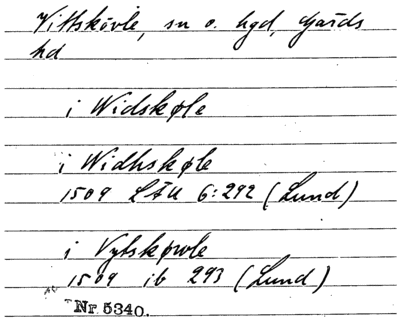 Vittskövle, sn o. hgd, Gärds
hd
i Widskøle
i Widhskøle
1509 LÄU 6:292 (Lund)
i Vytskøwle
1509 ib 293 (Lund)
Nr 5340.